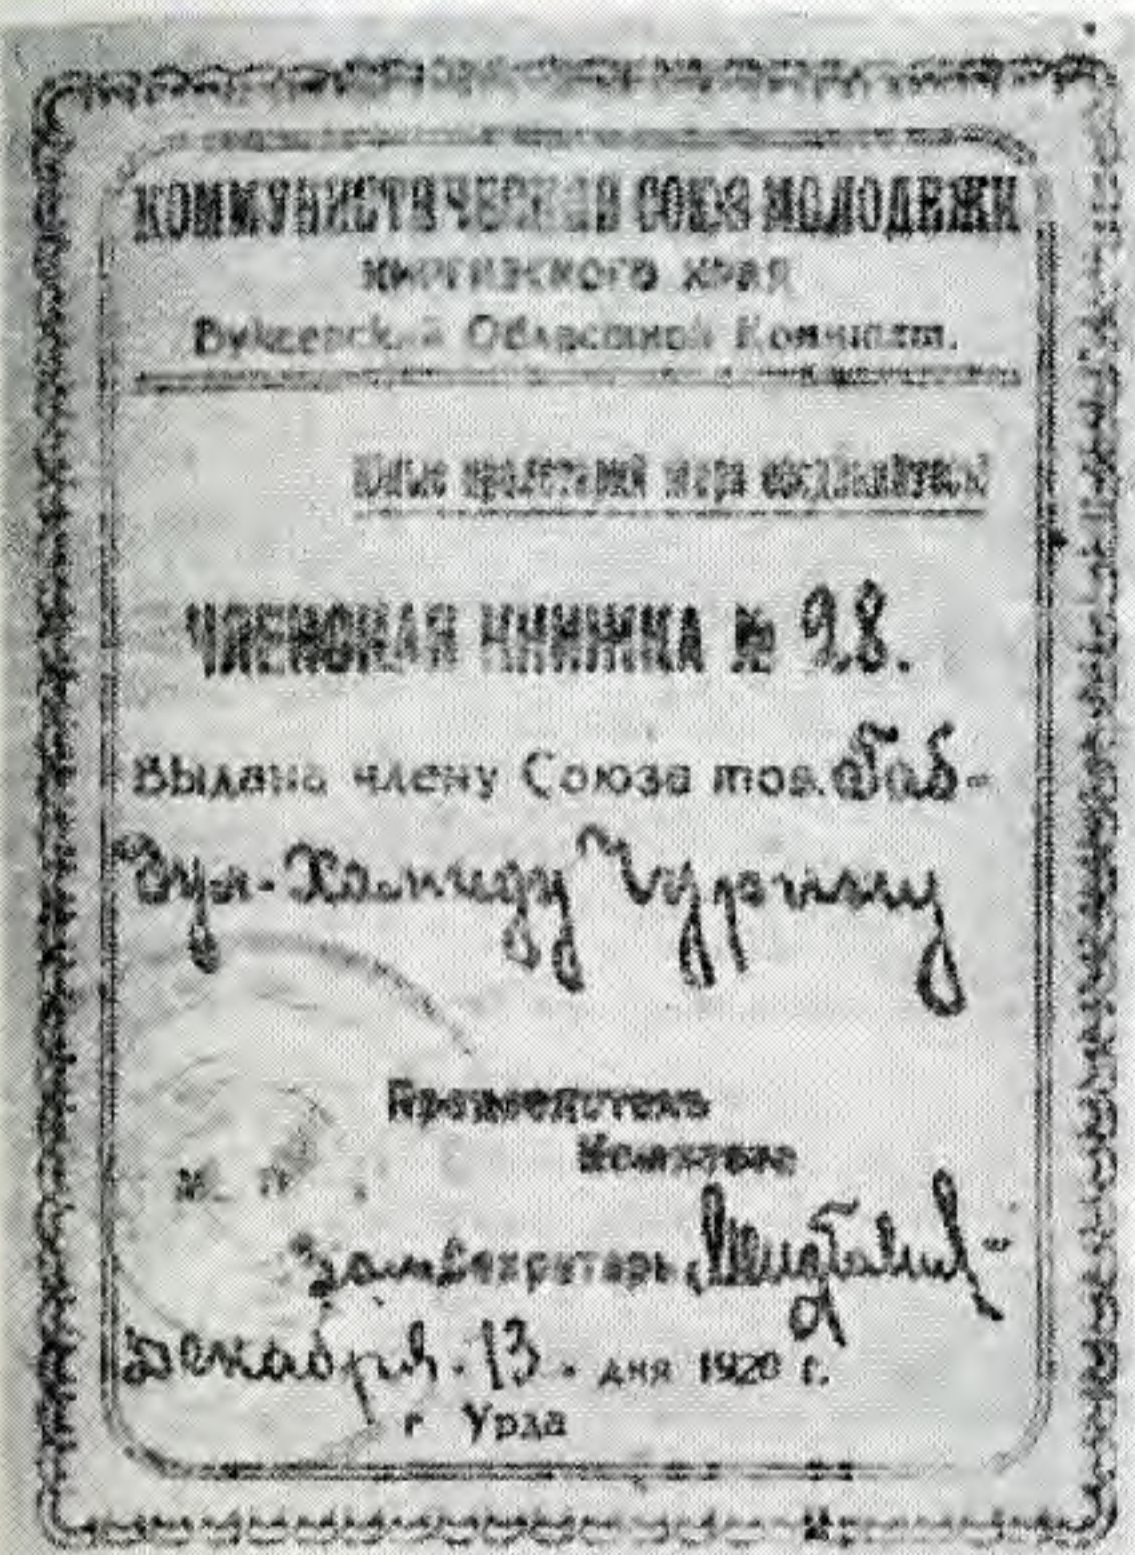 КОММУНИСТИЧЕСКИЙ СОЮЗ МОЛОДЕЖИ
КИРГИЗСКОГО КРАЯ
Букеевский Областной Комитет.
Юные пролетарии мира соединяйтесь!
ЧЛЕНСКАЯ КНИЖКА № 98.
Выдана члену Союза тов. Габ-
дул-Хамиду Чурину
Председатель
Комитета
ЗамСекретарь
М. П.
Декабря. 13. дня 1920 г.
г Урда